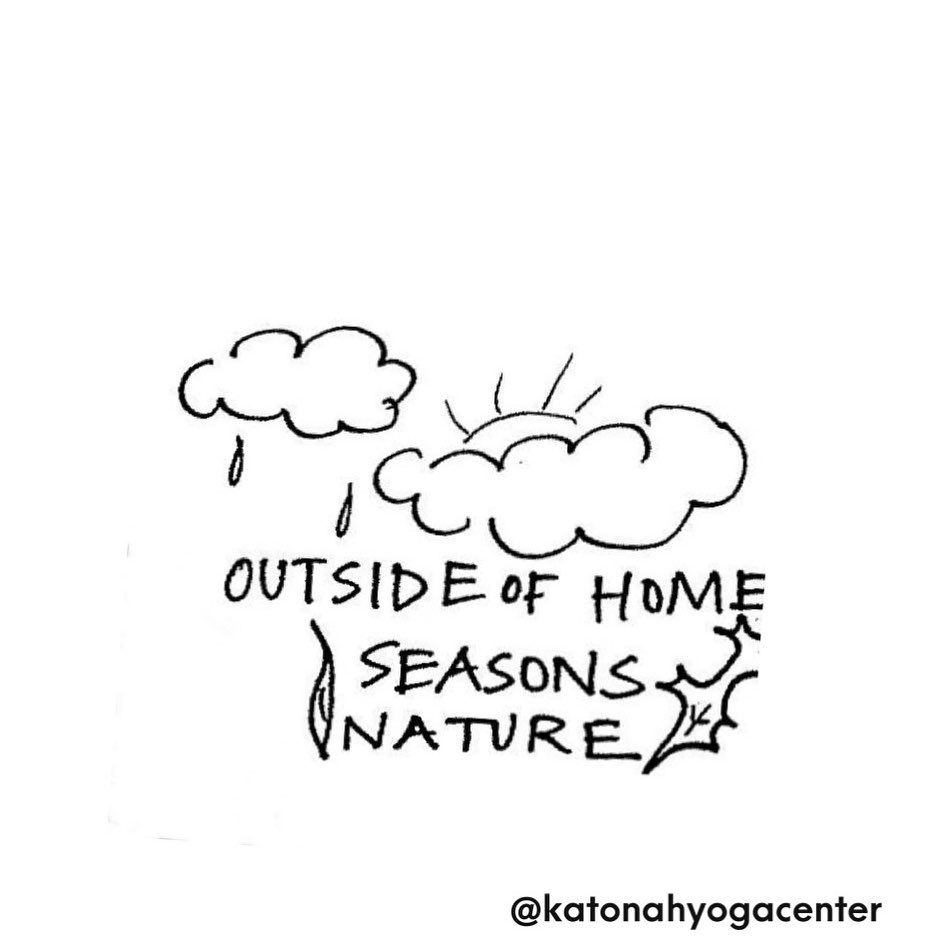 OUTSIDE OF HOME
SEASONS
NATURE
@katonahyogacenter